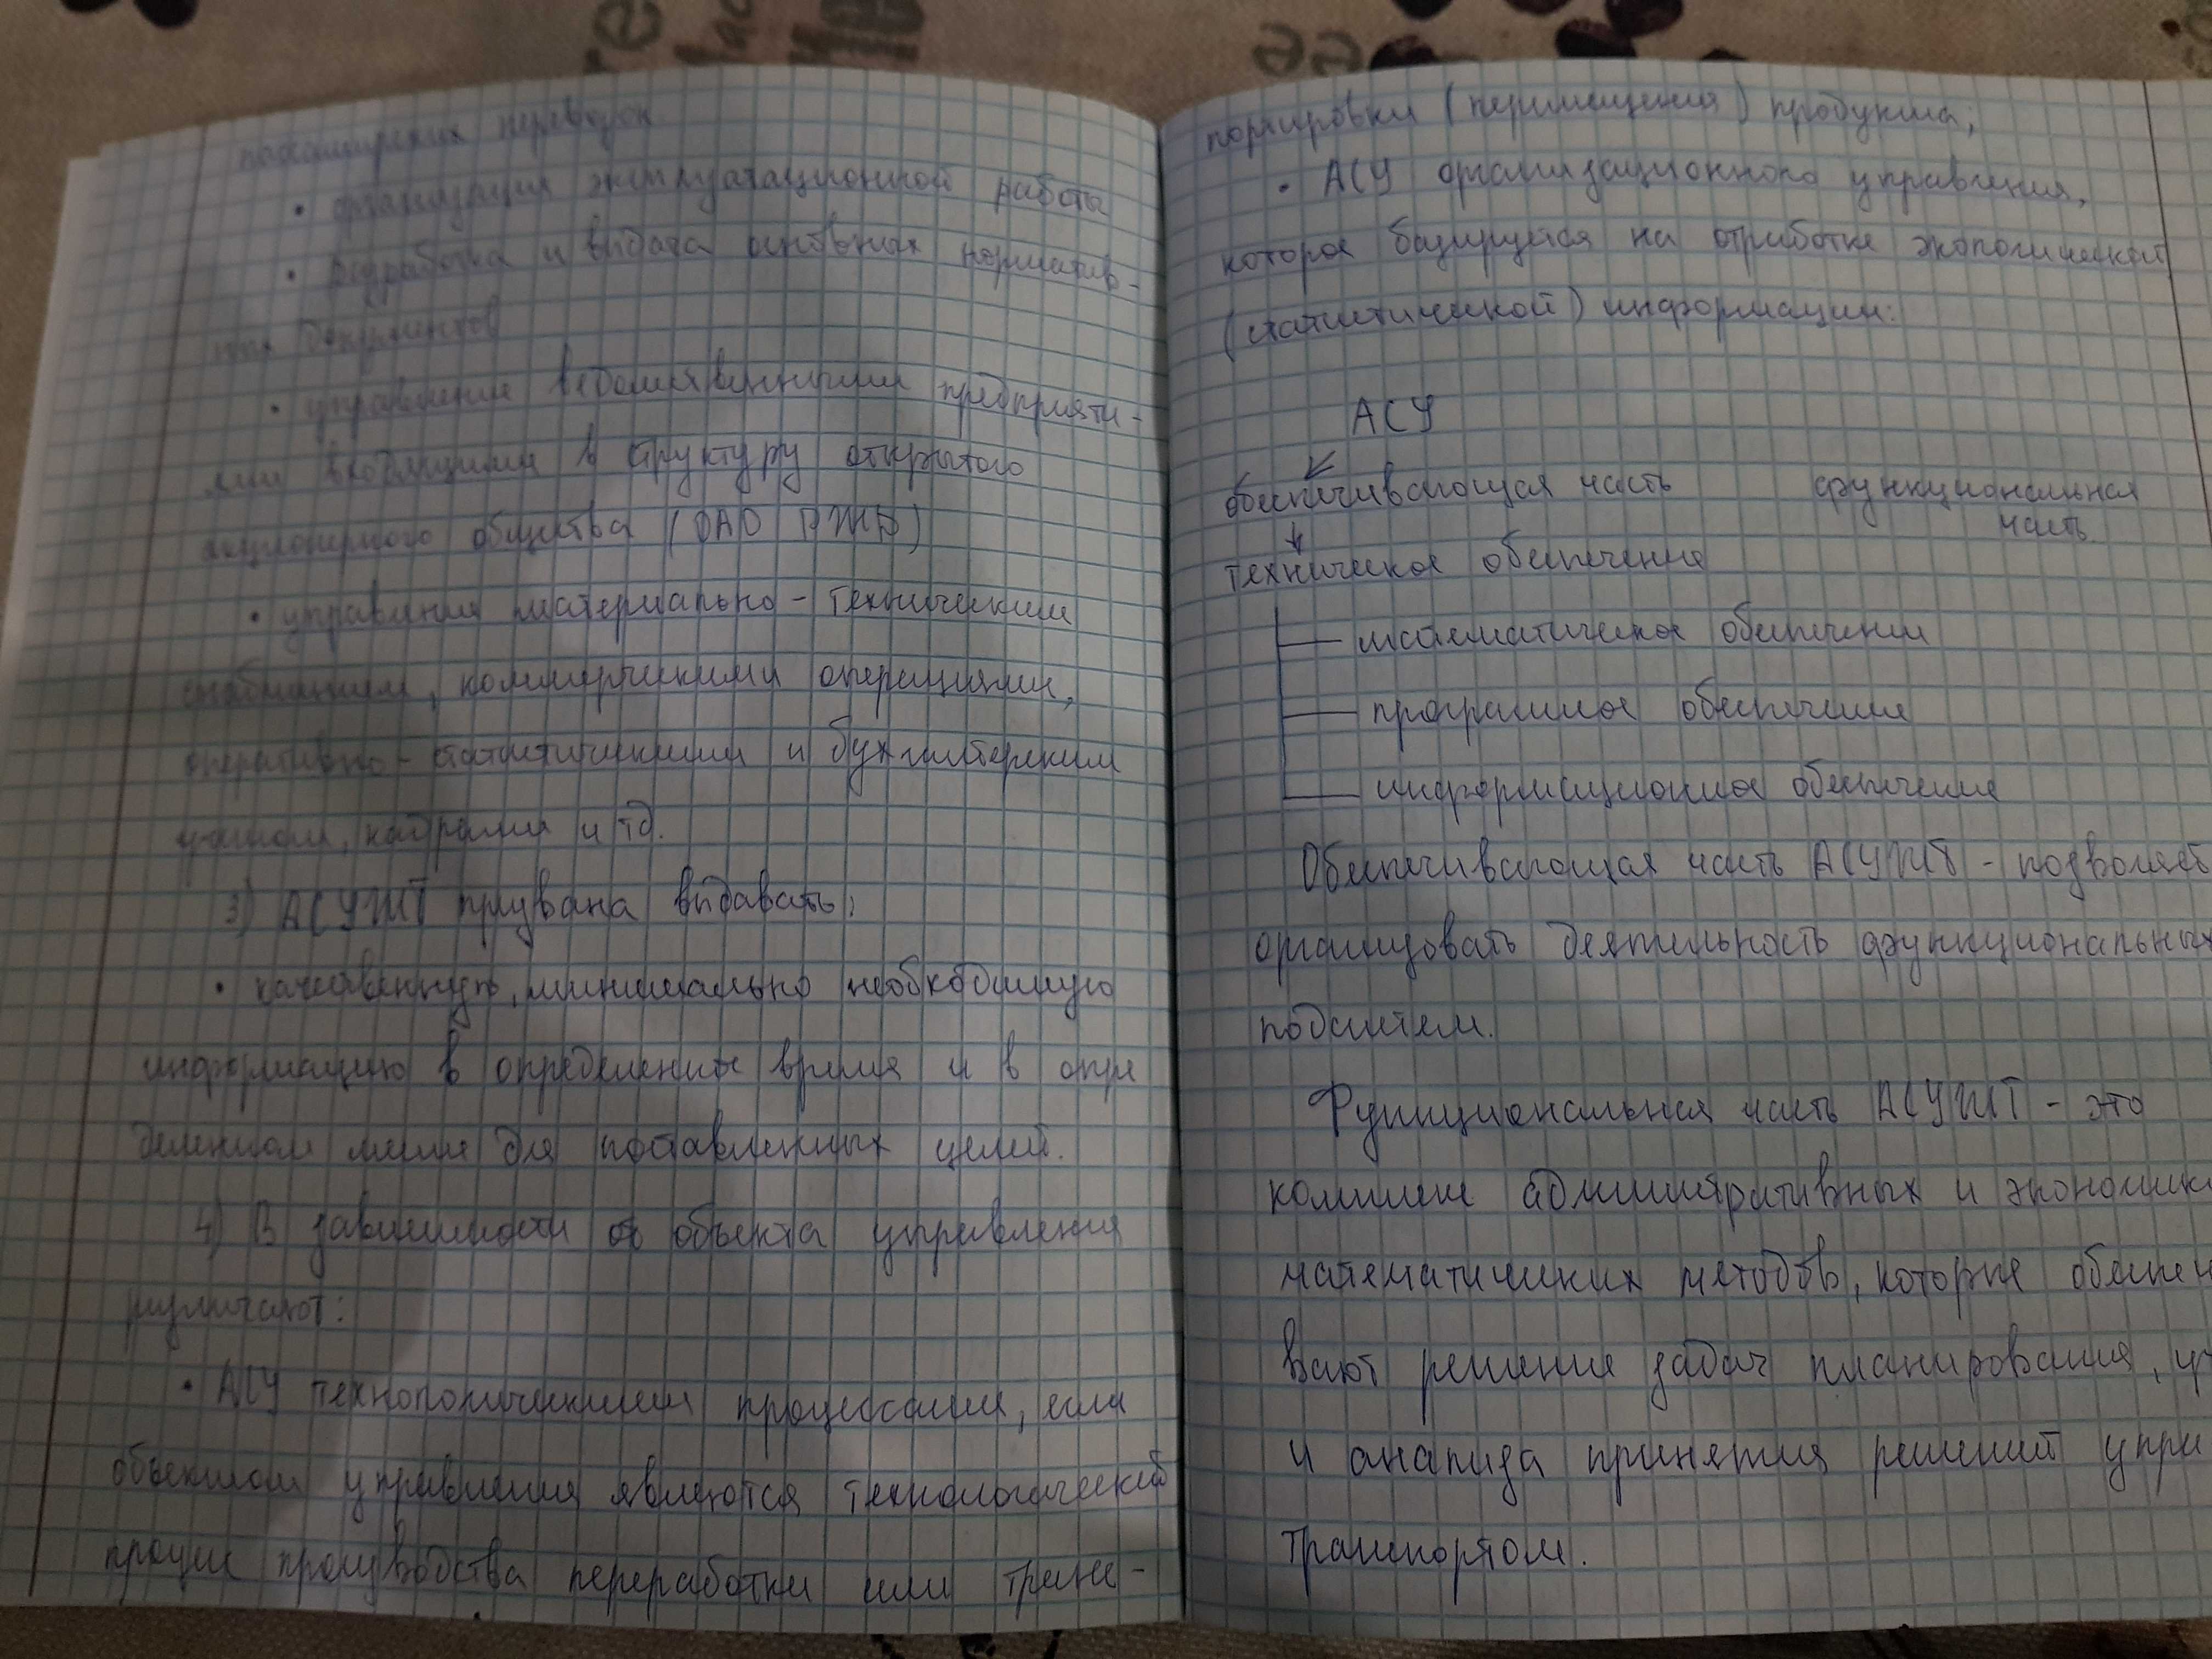 пассажирских перевозок
• организация эксплуатационной работы
• разработка и выдача основных норматив-
ных документов
• управление ведомственными предприяти-
ями входящими в структуру открытого
акционерного общества (ОАО РЖД)
• управления материально-техническим
снабжением, коммерческими операциями,
оперативно-статистическим и бухгалтерским
учетом, кадрами и тд.
3) АСУЖТ призвана выдавать:
• качественную, минимально необходимую
информацию в определенное время и в опре
деленном месте для поставленных целей.
4) В зависимости от объекта управления
различают:
• АСУ технологическими процессами, если
объектом управления являются технологический
процесс производства переработки или транс-
портировки (перемещения) продукта;
• АСУ организационного управления,
которое базируется на отработке экономической
(статистической) информации:
АСУ
обеспечивающая часть функциональная
часть
техническое обеспечение
математическое обеспечение
програмное обеспечение
информационное обеспечение
Обеспечивающая часть АСУЖТ - позволяет
организовать деятельность функциональных
подсистем.
Функциональная часть АСУЖТ - это
комплекс административных и экономико
математических методов, которые обеспеч
вают решение задач планирования, уч
и анализа принятия решений упра
транспортом.